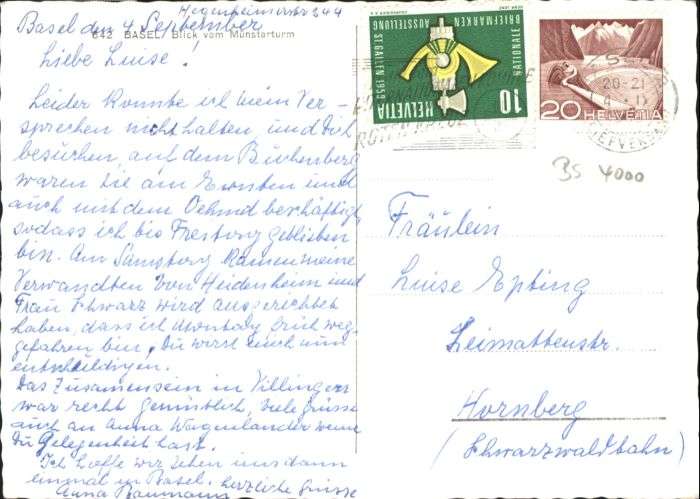 Hegenheimerstr 244
Basel den 4 September
612 BASEL Blick vom Münsterturm
Liebe Luise!
Leider konnte ich mein Ver-
sprechen nicht halten, und Dich
besuchen, auf dem Büchenberg
waren sie am Ernten und
auch mit dem Oehmd beschäftigt,
sodass ich bis Freitag geblieben
bin. Am Samstag kamen meine
Verwandten von Heidenheim und
Frau Schwarz wird ausgerichtet
haben, dass ich Montag früh weg-
gefahren bin, Du wirst mich nun
entschuldigen.
Das Zusammensein in Villingen
war recht gemütlich, viele Grüsse
auch an Anna Wagenländer wenn
Du Gelegenheit hast.
Ich hoffe wir sehen uns dann
einmal in Basel. herzliche Grüsse
Anna Baumann
NATIONALE
BRIEFMARKEN AUSSTELLUNG
ST. GALLEN 1959
HELVETIA
10
20 HELVETIA
20-21
ROTEN
BRIEFVERSAND
BS 4000
Fräulein
Luise Epting
Leimattenstr.
Hornberg
(Schwarzwaldbahn)